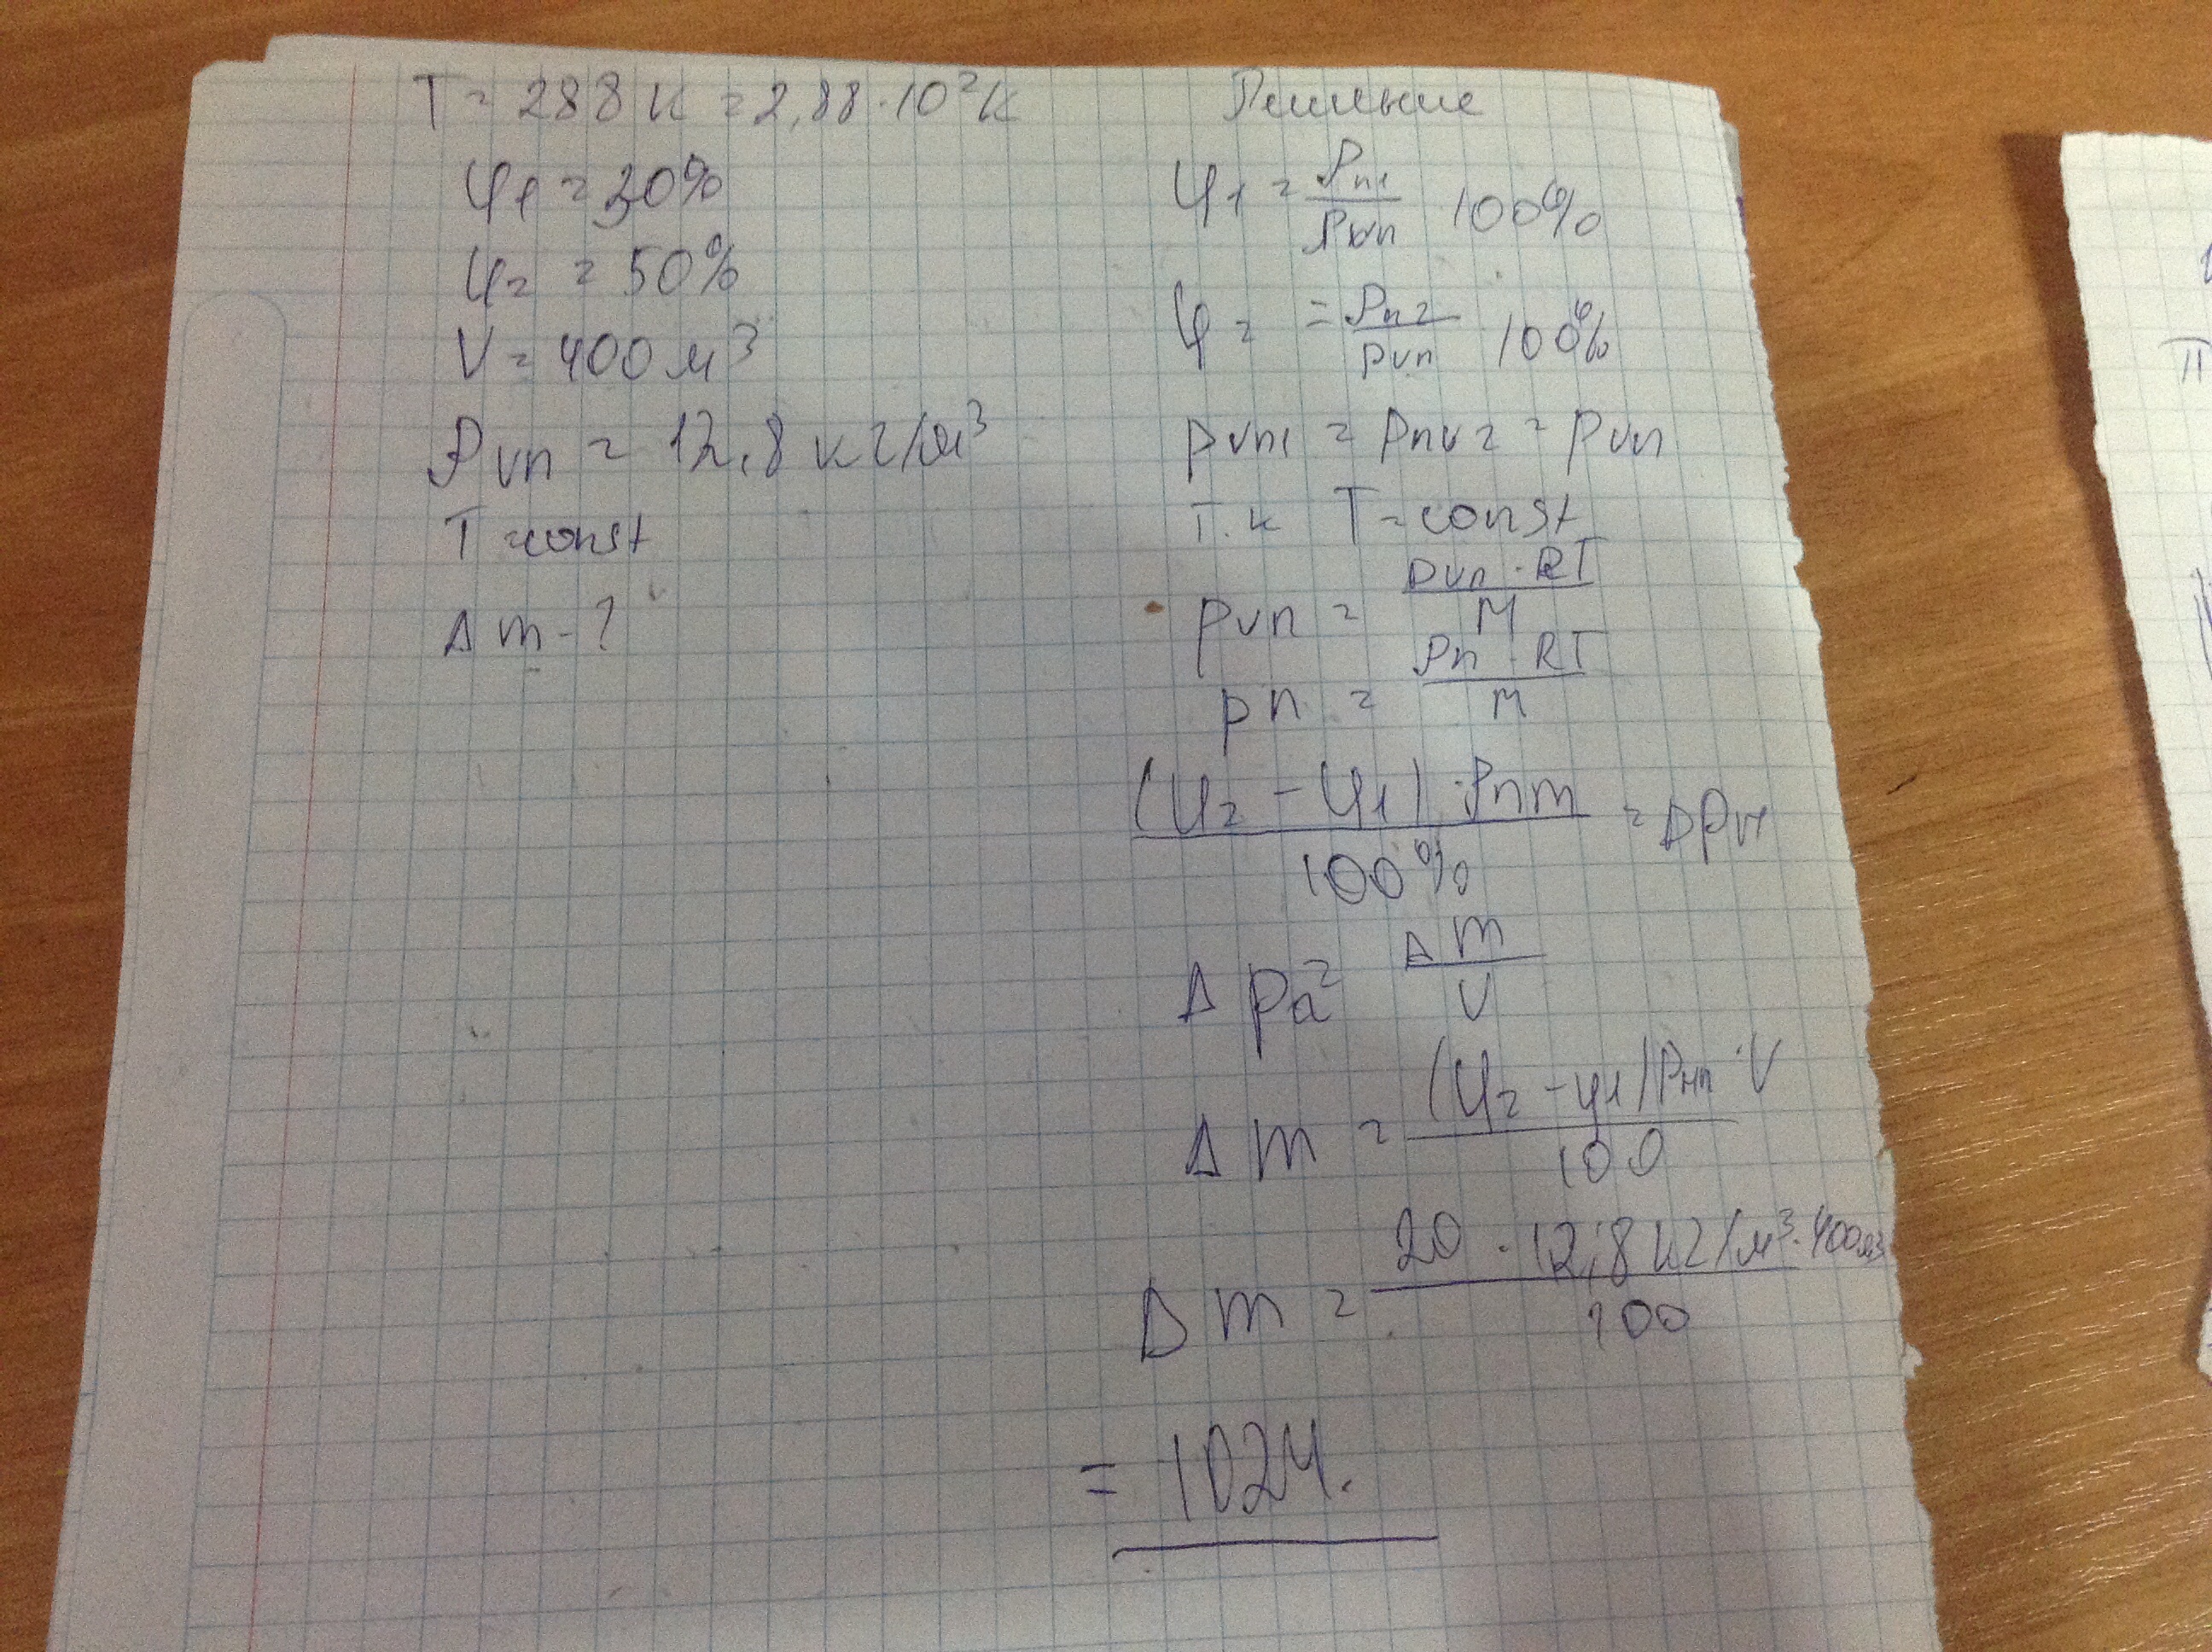 T = 288 К = 2,88 · 10² К
φ1 = 30%
φ2 = 50%
V = 400 м³
ρнп = 12,8 кг/м³
T = const
Δm - ?
Решение
φ1 = ρп1/ρнп 100%
φ2 = ρп2/ρнп 100%
pнп1 = pпн2 = pнп
т.к T = const
pнп = ρнп · RT/M
pп = ρп · RT/M
(φ2 - φ1) · ρпт/100% = Δρ
Δρп = Δm/V
Δm = (φ2 - φ1) ρнп · V/100
Δm = 20 · 12,8 кг/м³ · 400м³/100
= 1024.